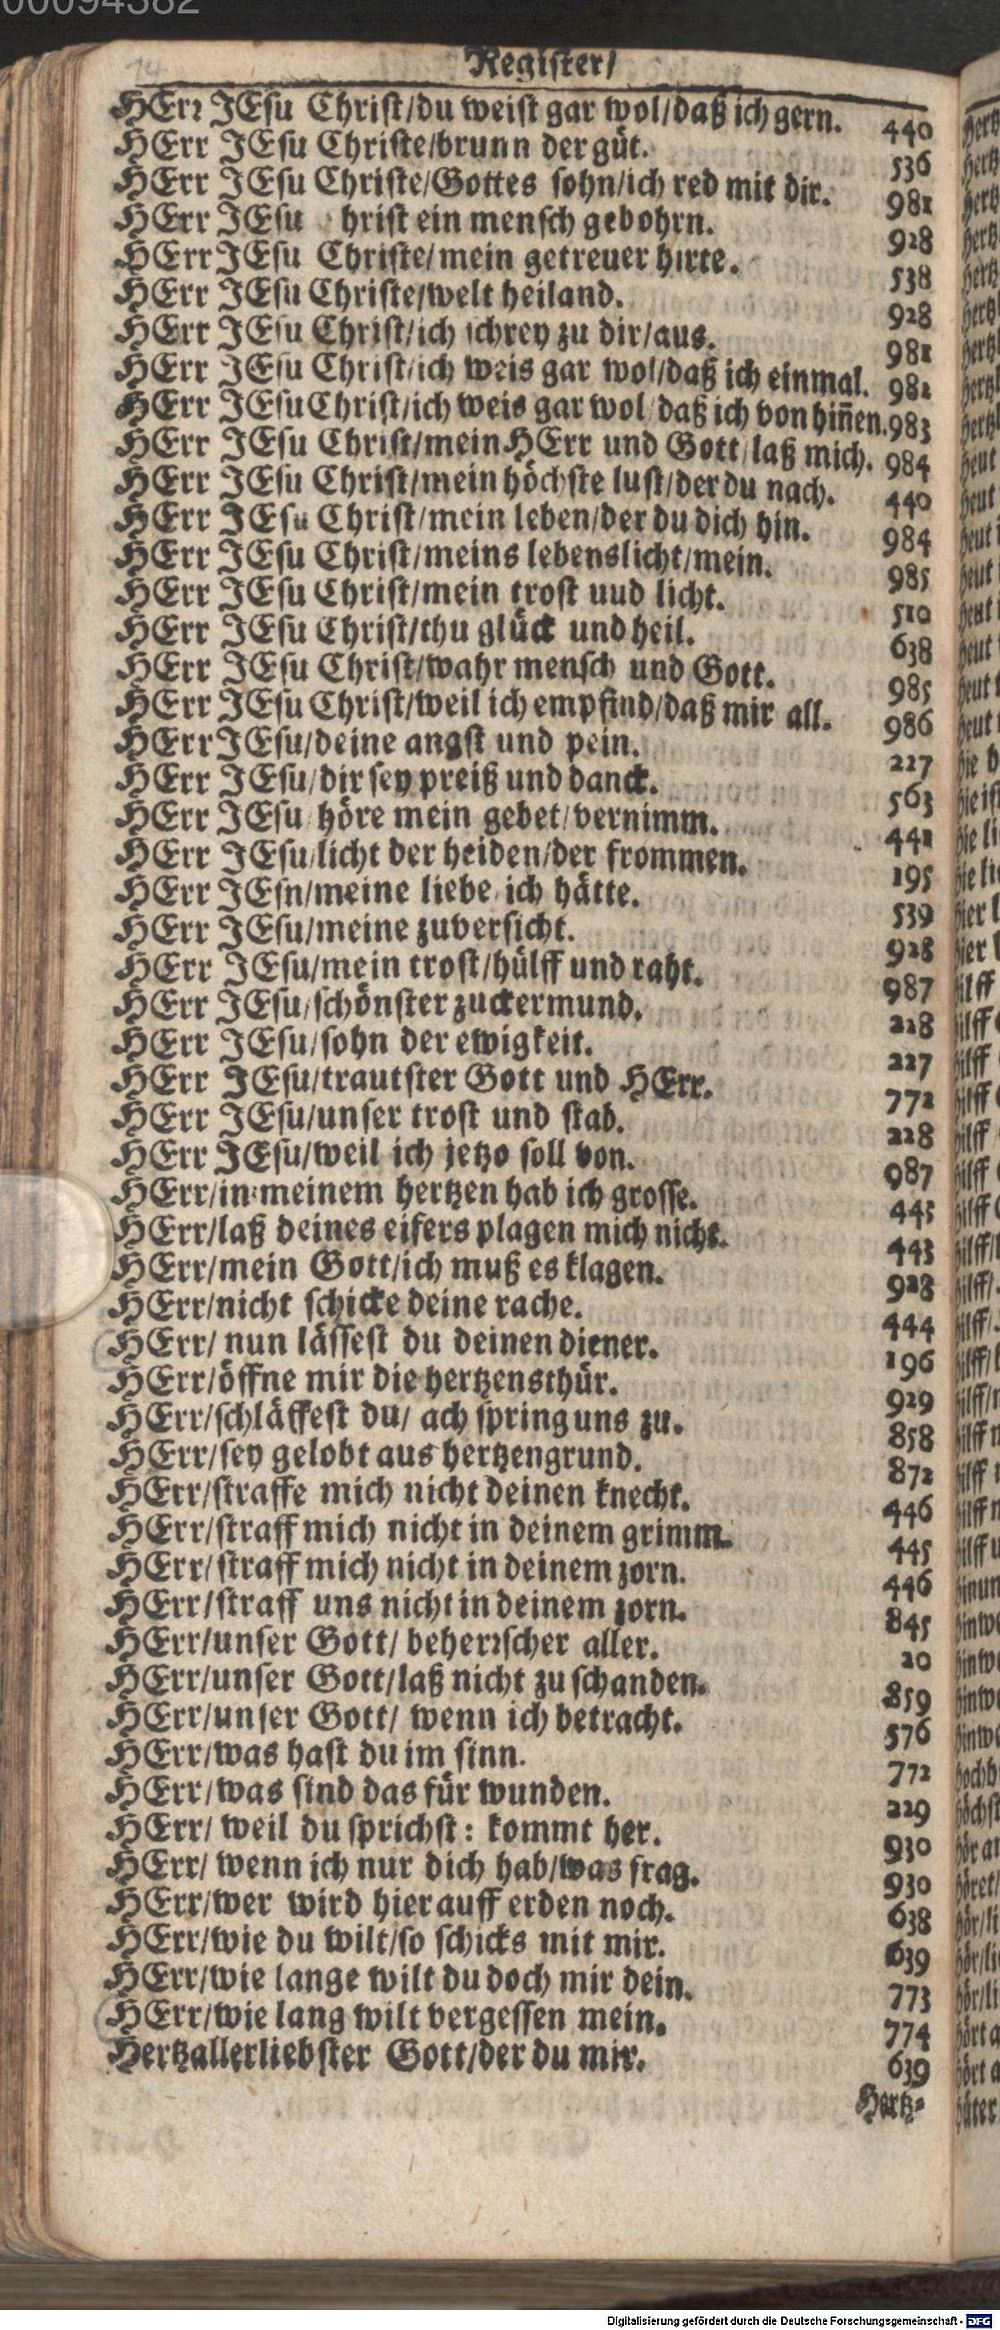 Register/
HErr JEsu Christ/du weist gar wol/daß ich gern. 440
HErr JEsu Christe/brunn der güt. 536
HErr JEsu Christe/Gottes sohn/ich red mit dir. 981
HErr JEsu hrist ein mensch gebohrn. 928
HErr JEsu Christe/mein getreuer hirte. 538
HErr JEsu Christe/welt heiland. 928
HErr JEsu Christ/ich schrey zu dir/aus. 981
HErr JEsu Christ/ich weis gar wol/daß ich einmal. 982
HErr JEsu Christ/ich weis gar wol/daß ich von hiñen. 983
HErr JEsu Christ/mein HErr und Gott/laß mich. 984
HErr JEsu Christ/mein höchste lust/der du nach. 440
HErr JEsu Christ/mein leben/der du dich hin. 984
HErr JEsu Christ/meins lebenslicht/mein. 985
HErr JEsu Christ/mein trost uud licht. 510
HErr JEsu Christ/thu glück und heil. 638
HErr JEsu Christ/wahr mensch und Gott. 985
HErr JEsu Christ/weil ich empfind/daß mir all. 986
HErr JEsu/deine angst und pein. 227
HErr JEsu/dir sey preiß und danck. 563
HErr JEsu höre mein gebet/vernimm. 441
HErr JEsu/licht der heiden/der frommen. 195
HErr JEsn/meine liebe ich hätte. 539
HErr JEsu/meine zuversicht. 928
HErr JEsu/mein trost/hülff und raht. 987
HErr JEsu/schönster zuckermund. 228
HErr JEsu/sohn der ewigkeit. 227
HErr JEsu/trautster Gott und HErr. 772
HErr JEsu/unser trost und stab. 228
HErr JEsu/weil ich jetzo soll von. 987
HErr/in meinem hertzen hab ich grosse. 445
HErr/laß deines eifers plagen mich nicht. 443
HErr/mein Gott/ich muß es klagen. 928
HErr/nicht schicke deine rache. 444
HErr/ nun lässest du deinen diener. 196
HErr/öffne mir die hertzensthür. 929
HErr/schläffest du/ ach spring uns zu. 858
HErr/sey gelobt aus hertzengrund. 872
HErr/straffe mich nicht deinen knecht. 446
HErr/straff mich nicht in deinem grimm. 445
HErr/straff mich nicht in deinem zorn. 446
HErr/straff uns nicht in deinem zorn. 845
HErr/unser Gott/ beherrscher aller. 20
HErr/unser Gott/laß nicht zu schanden. 859
HErr/unser Gott/ wenn ich betracht. 576
HErr/was hast du im sinn. 772
HErr/was sind das für wunden. 229
HErr/ weil du sprichst: kommt her. 930
HErr/ wenn ich nur dich hab/was frag. 930
HErr/wer wird hier auff erden noch. 638
HErr/wie du wilt/so schicks mit mir. 639
HErr/wie lange wilt du doch mir dein. 773
HErr/wie lang wilt vergessen mein. 774
Hertzallerliebster Gott/der du mir. 639
Hertz-
Digitalisierung gefördert durch die Deutsche Forschungsgemeinschaft - DFG